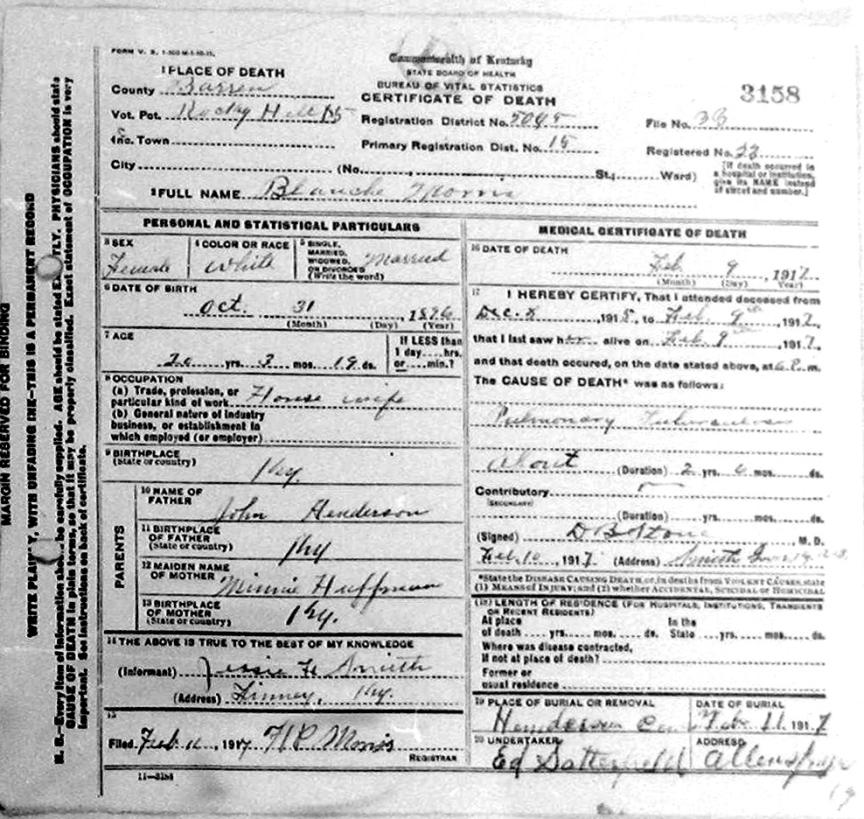 FORM V. S. 1-
Commonwealth of Kentucky
STATE BOARD OF HEALTH
BUREAU OF VITAL STATISTICS
CERTIFICATE OF DEATH
3158
1 PLACE OF DEATH
County Barren
Vot. Pct. Rocky Hill
Inc. Town
City
Registration District No. 5095
Primary Registration Dist. No. 15
File No. 38
Registered No. 33
(No. St.; Ward)
[If death occurred in a hospital or institution, give its NAME instead of street and number.]
2 FULL NAME Blanche Morris
PERSONAL AND STATISTICAL PARTICULARS
3 SEX Female
4 COLOR OR RACE White
5 SINGLE, MARRIED, WIDOWED, OR DIVORCED (Write the word) Married
6 DATE OF BIRTH
Oct. 31, 1896
(Month) (Day) (Year)
7 AGE
20 yrs. 3 mos. 19 ds.
If LESS than 1 day hrs. or min.?
8 OCCUPATION
(a) Trade, profession, or particular kind of work House wife
(b) General nature of industry
business, or establishment in
which employed (or employer)
9 BIRTHPLACE
(State or country) Ky.
PARENTS
10 NAME OF FATHER John Henderson
11 BIRTHPLACE OF FATHER (State or country) Ky
12 MAIDEN NAME OF MOTHER Minnie Huffman
13 BIRTHPLACE OF MOTHER (State or country) Ky.
14 THE ABOVE IS TRUE TO THE BEST OF MY KNOWLEDGE
(Informant) Jessie H Smith
(Address) Finney, Ky.
15
Filed Feb 1917 H P Morris
REGISTRAR
11-3184
MEDICAL CERTIFICATE OF DEATH
16 DATE OF DEATH
Feb. 9, 1917
(Month) (Day) (Year)
17 I HEREBY CERTIFY, That I attended deceased from
Dec. 8, 1915, to Feb. 9th, 1917,
that I last saw her alive on Feb. 9th, 1917,
and that death occured, on the date stated above, at 6 P. m.
The CAUSE OF DEATH* was as follows:
Pulmonary Tuberculosis
About (Duration) 2 yrs. 6 mos. ds.
Contributory
(SECONDARY)
(Duration) yrs. mos. ds.
(Signed) D B Stone, M. D.
Feb. 10, 1917. (Address) Smiths Grove Ky
*State the DISEASE CAUSING DEATH, or, in deaths from VIOLENT CAUSES, state
(1) MEANS OF INJURY; and (2) whether ACCIDENTAL, SUICIDAL or HOMICIDAL
(18) LENGTH OF RESIDENCE (FOR HOSPITALS, INSTITUTIONS, TRANSIENTS
OR RECENT RESIDENTS)
At place of death yrs. mos. ds. In the State yrs. mos. ds.
Where was disease contracted,
If not at place of death?
Former or
usual residence
19 PLACE OF BURIAL OR REMOVAL
Henderson Cem
DATE OF BURIAL
Feb. 11, 1917
20 UNDERTAKER
Ed Satterfield
ADDRESS
MARGIN RESERVED FOR BINDING
WRITE PLAINLY, WITH UNFADING INK—THIS IS A PERMANENT RECORD
N. B.—Every item of information should be carefully supplied. AGE should be stated EXACTLY. PHYSICIANS should state
CAUSE OF DEATH in plain terms, so that it may be properly classified. Exact statement of OCCUPATION is very
important. See instructions on back of certificate.